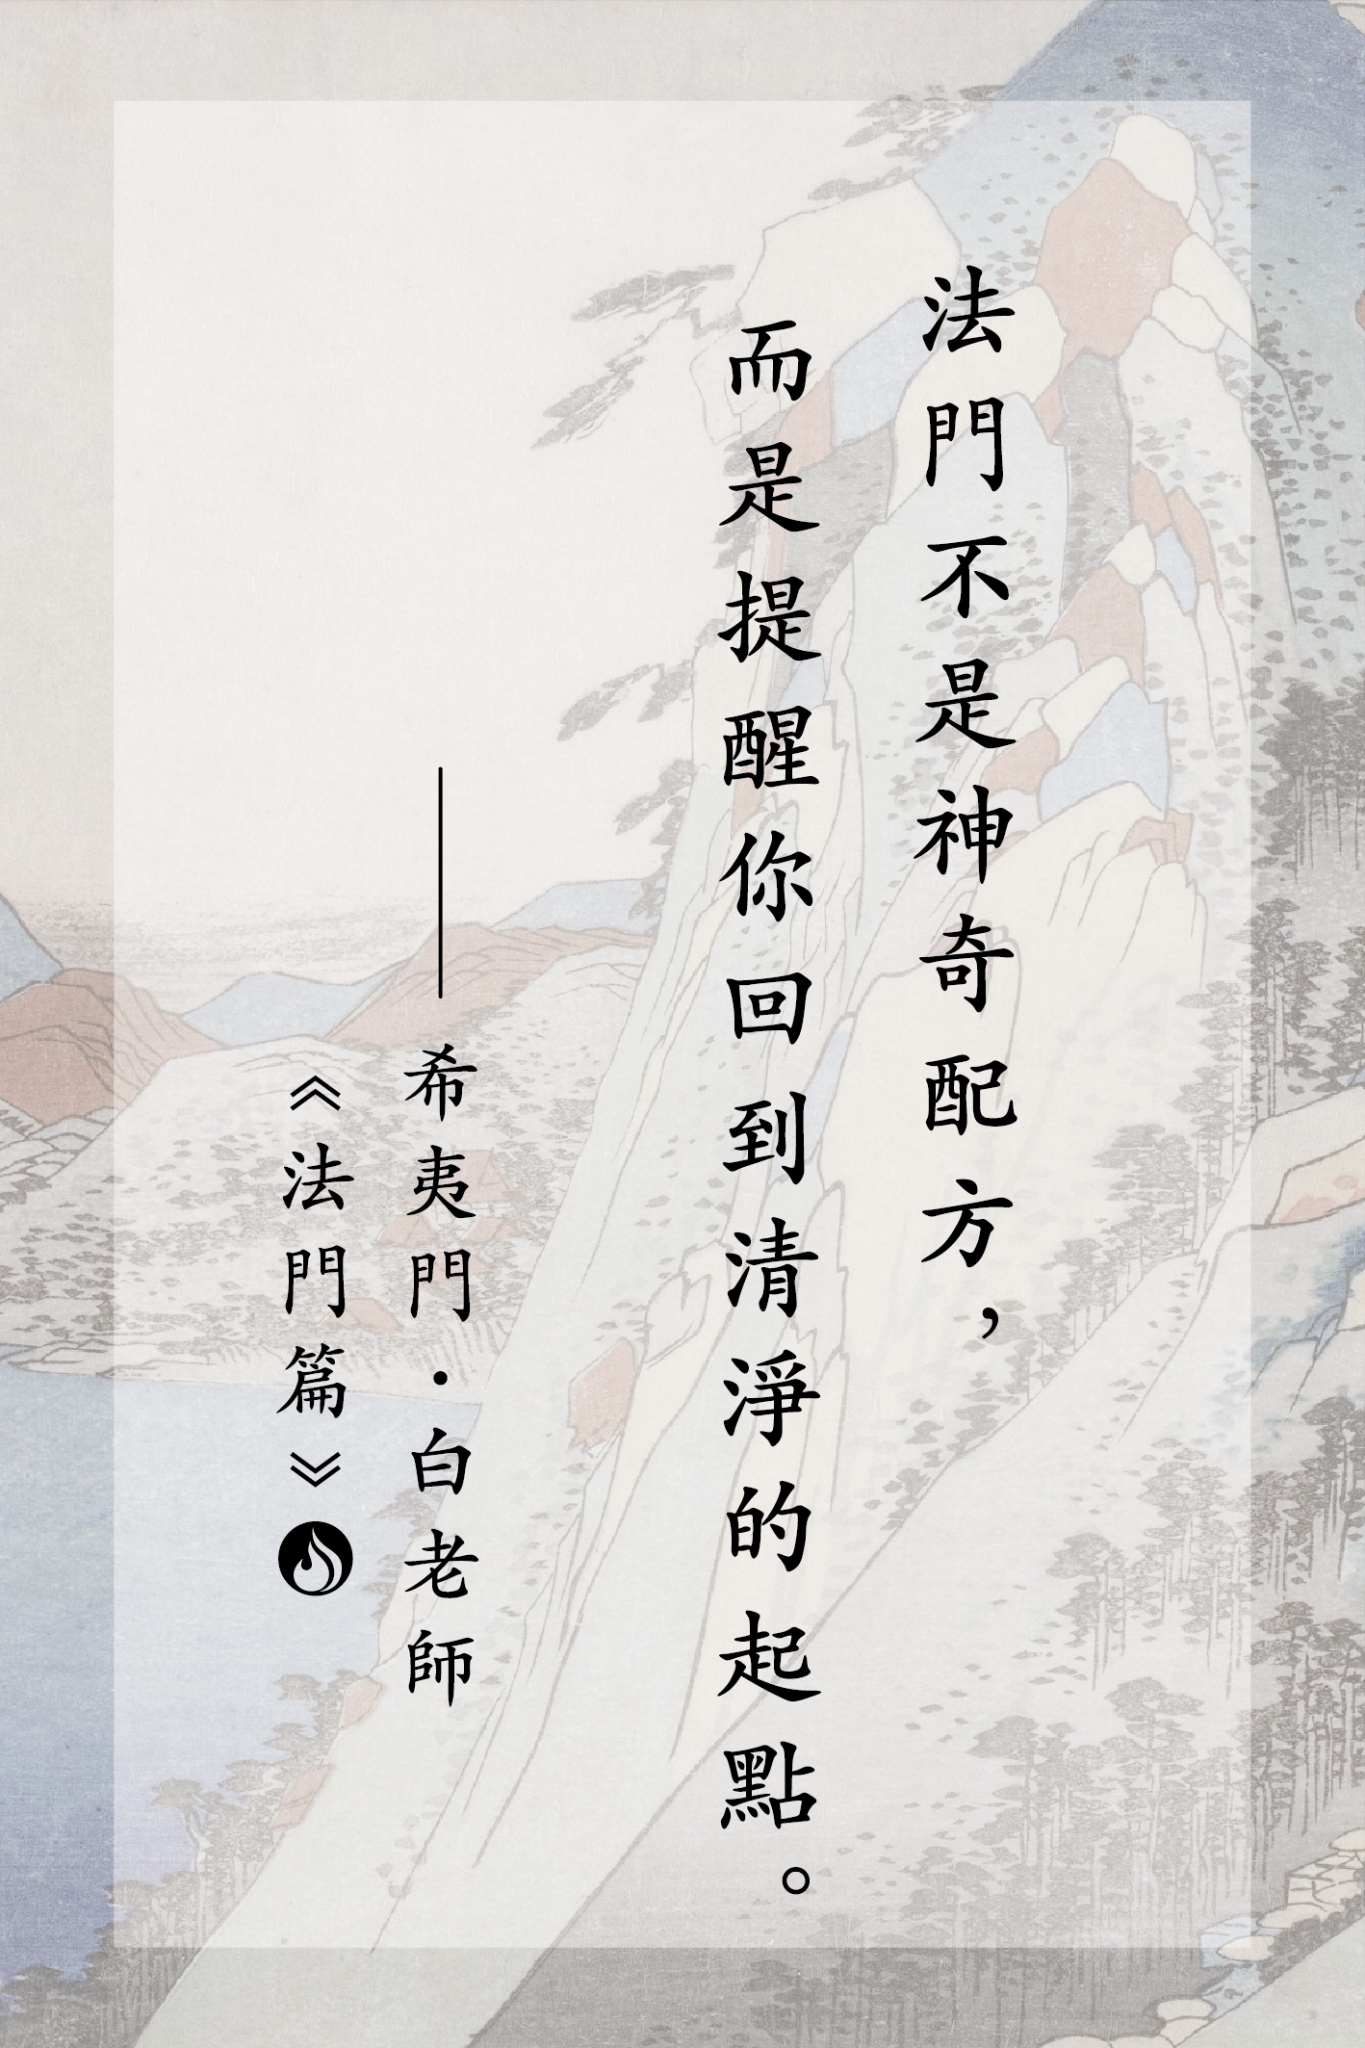 法門不是神奇配方，
而是提醒你回到清淨的起點。
——希夷門·白老師
《法門篇》